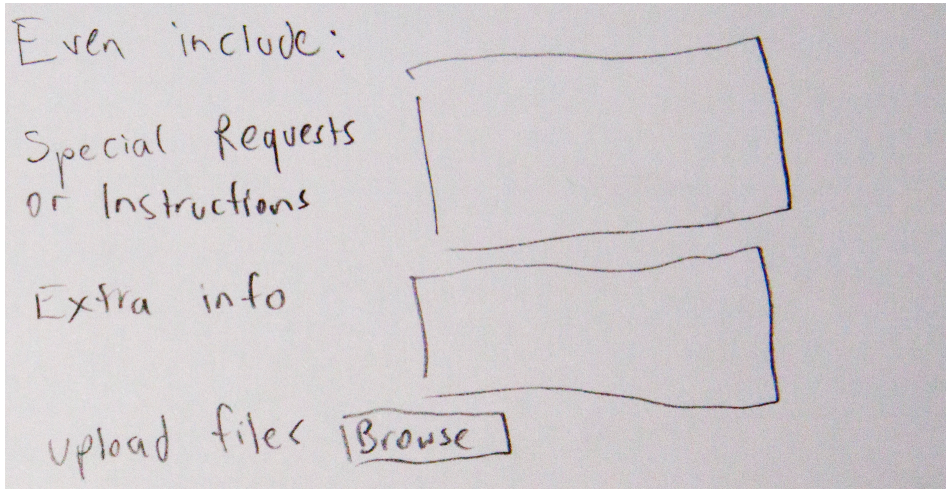 Even include:
Special Requests
or Instructions
Extra info
upload files
Browse